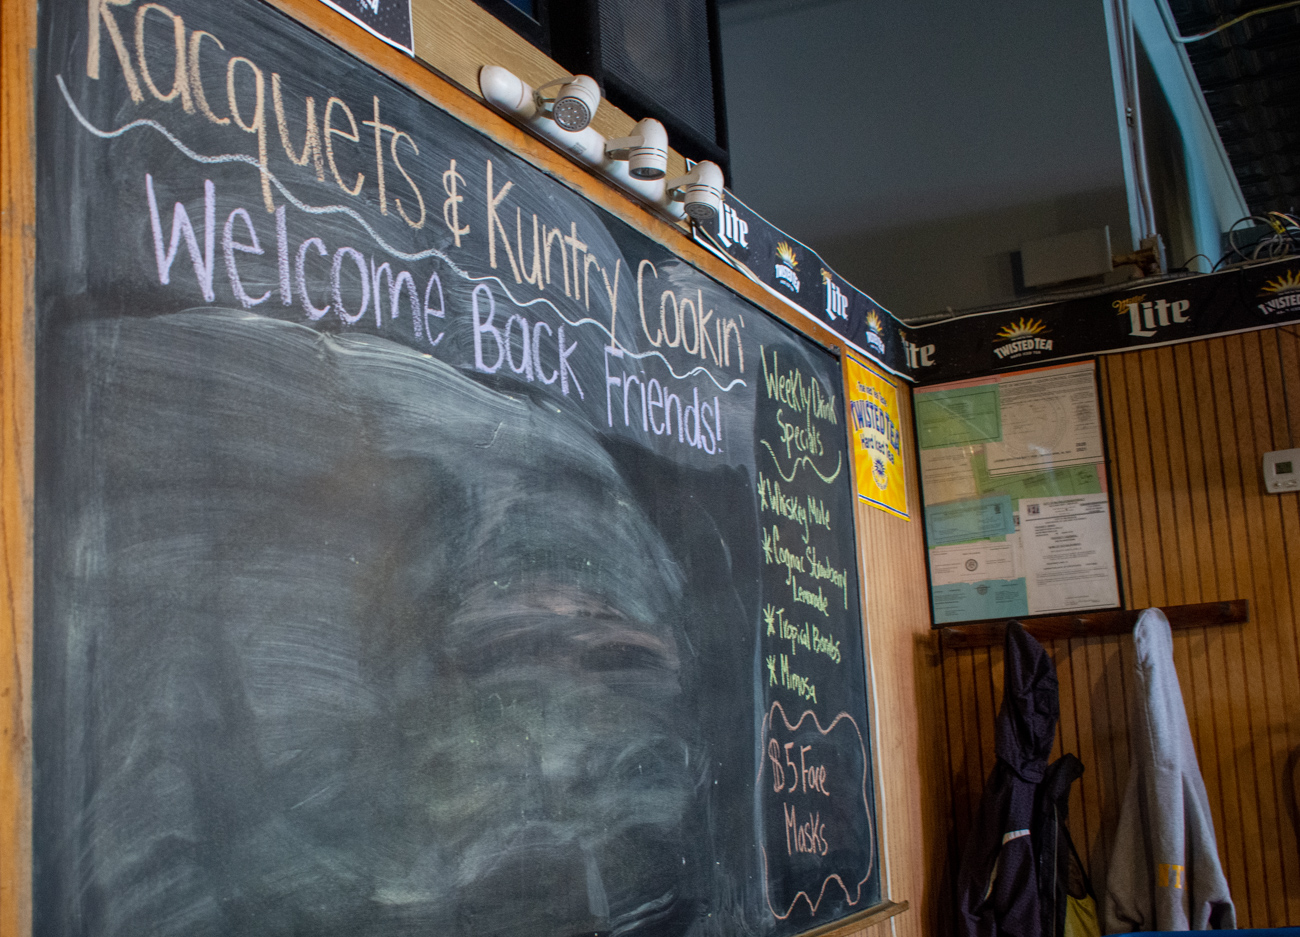 Racquets & Kuntry Cookin'
Welcome Back Friends!
Weekly Drink
Specials
* Whiskey Mule
* Cognac Strawberry
Lemonade
* Tropical Bombs
* Mimosa
$5 Face
Masks
Lite
TWISTED TEA
Lite
TWISTED TEA
HARD ICED TEA
Miller
Lite
TWISTED TEA
Hard Iced Tea